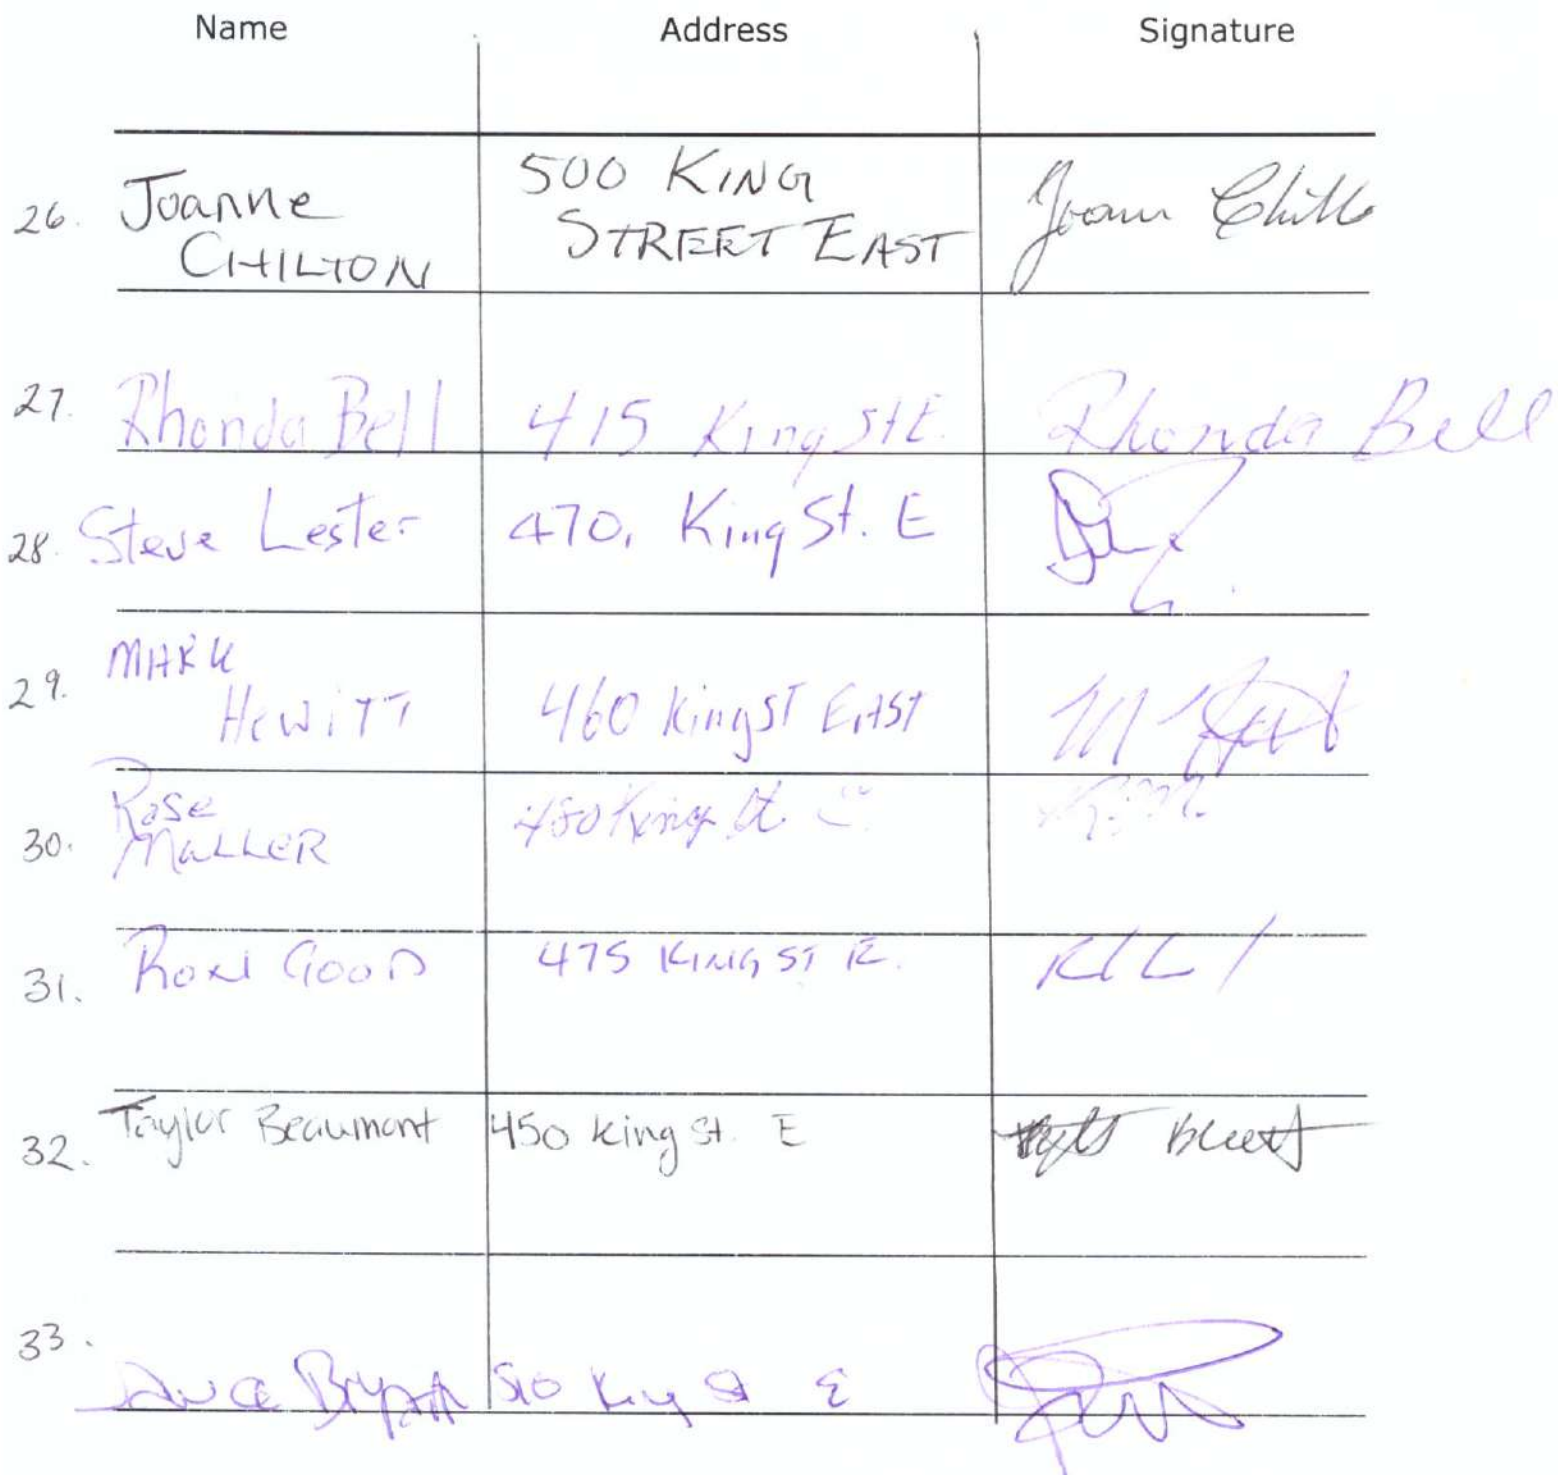 Name Address Signature
26. Joanne CHILTON 500 KING STREET EAST
27. Rhonda Bell 415 King St E. Rhonda Bell
28. Steve Lester 470, King St. E
29. MARK HEWITT 460 King ST EAST
30. Rose MULLER 480 King St. E.
31. RON GOOD 475 KING ST E.
32. Taylor Beaumont 450 King St. E
33. Bryan 510 King St E